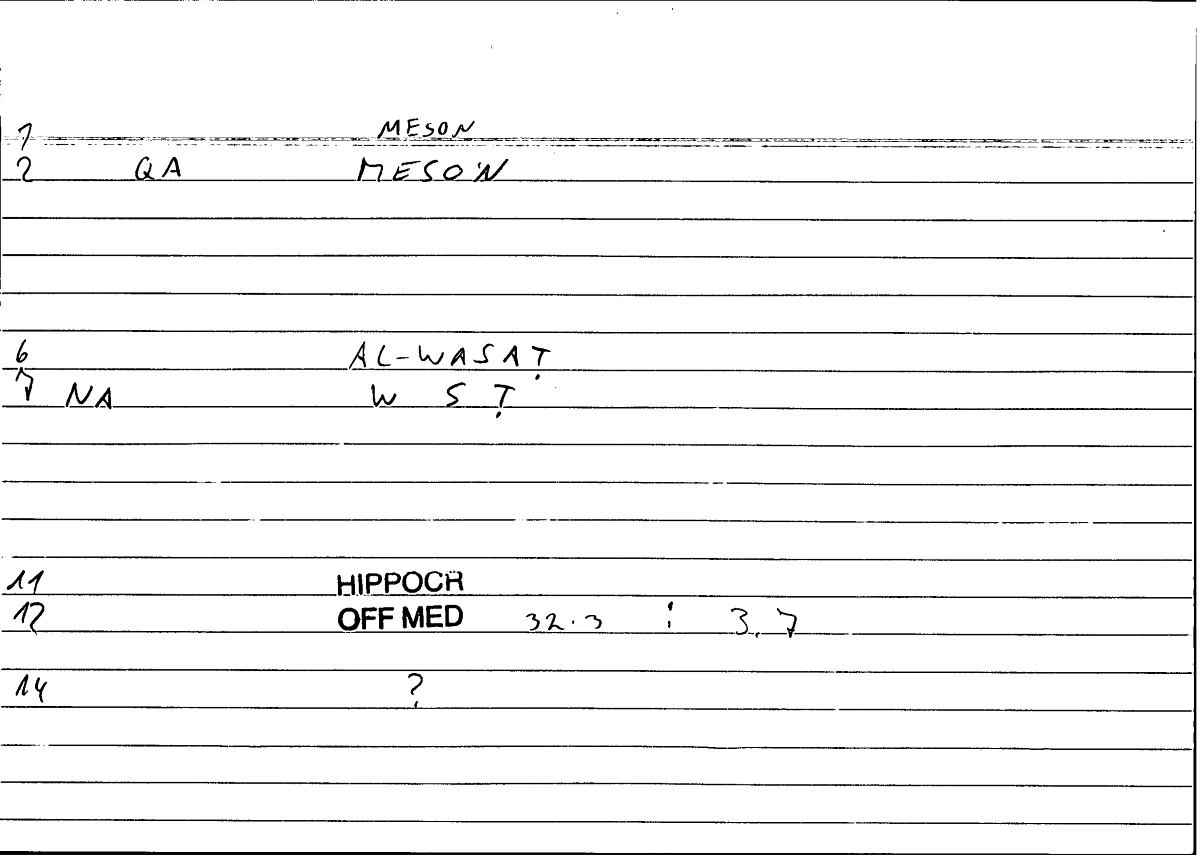 1 MESON
2 QA MESON
6 AL-WASAṬ
7 NA W S Ṭ
11 HIPPOCR
12 OFF MED 32.3 : 3.7
14 ?